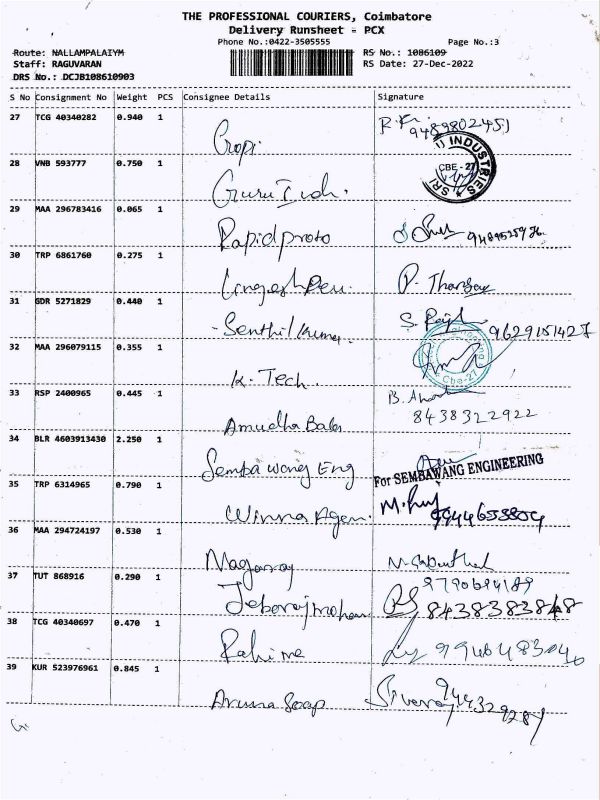 THE PROFESSIONAL COURIERS, Coimbatore
Delivery Runsheet - PCX
Phone No.:0422-3505555
Page No.:3
Route: NALLAMPALAIYM
RS No.: 1086109
Staff: RAGUVARAN
RS Date: 27-Dec-2022
DRS No.: DCJB108610903
S No Consignment No Weight PCS Consignee Details Signature
27 TCG 40340282 0.940 1
Gopi
28 VNB 593777 0.750 1
INDUSTRIES
CBE - 27
SRI
29 MAA 296783416 0.065 1
Rapid proto
30 TRP 6861760 0.275 1
31 GDR 5271829 0.440 1
Senthil Kumar
9629151427
32 MAA 296079115 0.355 1
K. Tech.
Cbe-27
33 RSP 2400965 0.445 1
8438322922
Amudha Bala
34 BLR 4603913430 2.250 1
Sembawang Eng
For SEMBAWANG ENGINEERING
35 TRP 6314965 0.790 1
36 MAA 294724197 0.530 1
Nagaraj
37 TUT 868916 0.290 1
38 TCG 40340697 0.470 1
39 KUR 523976961 0.845 1
Aruna Soap